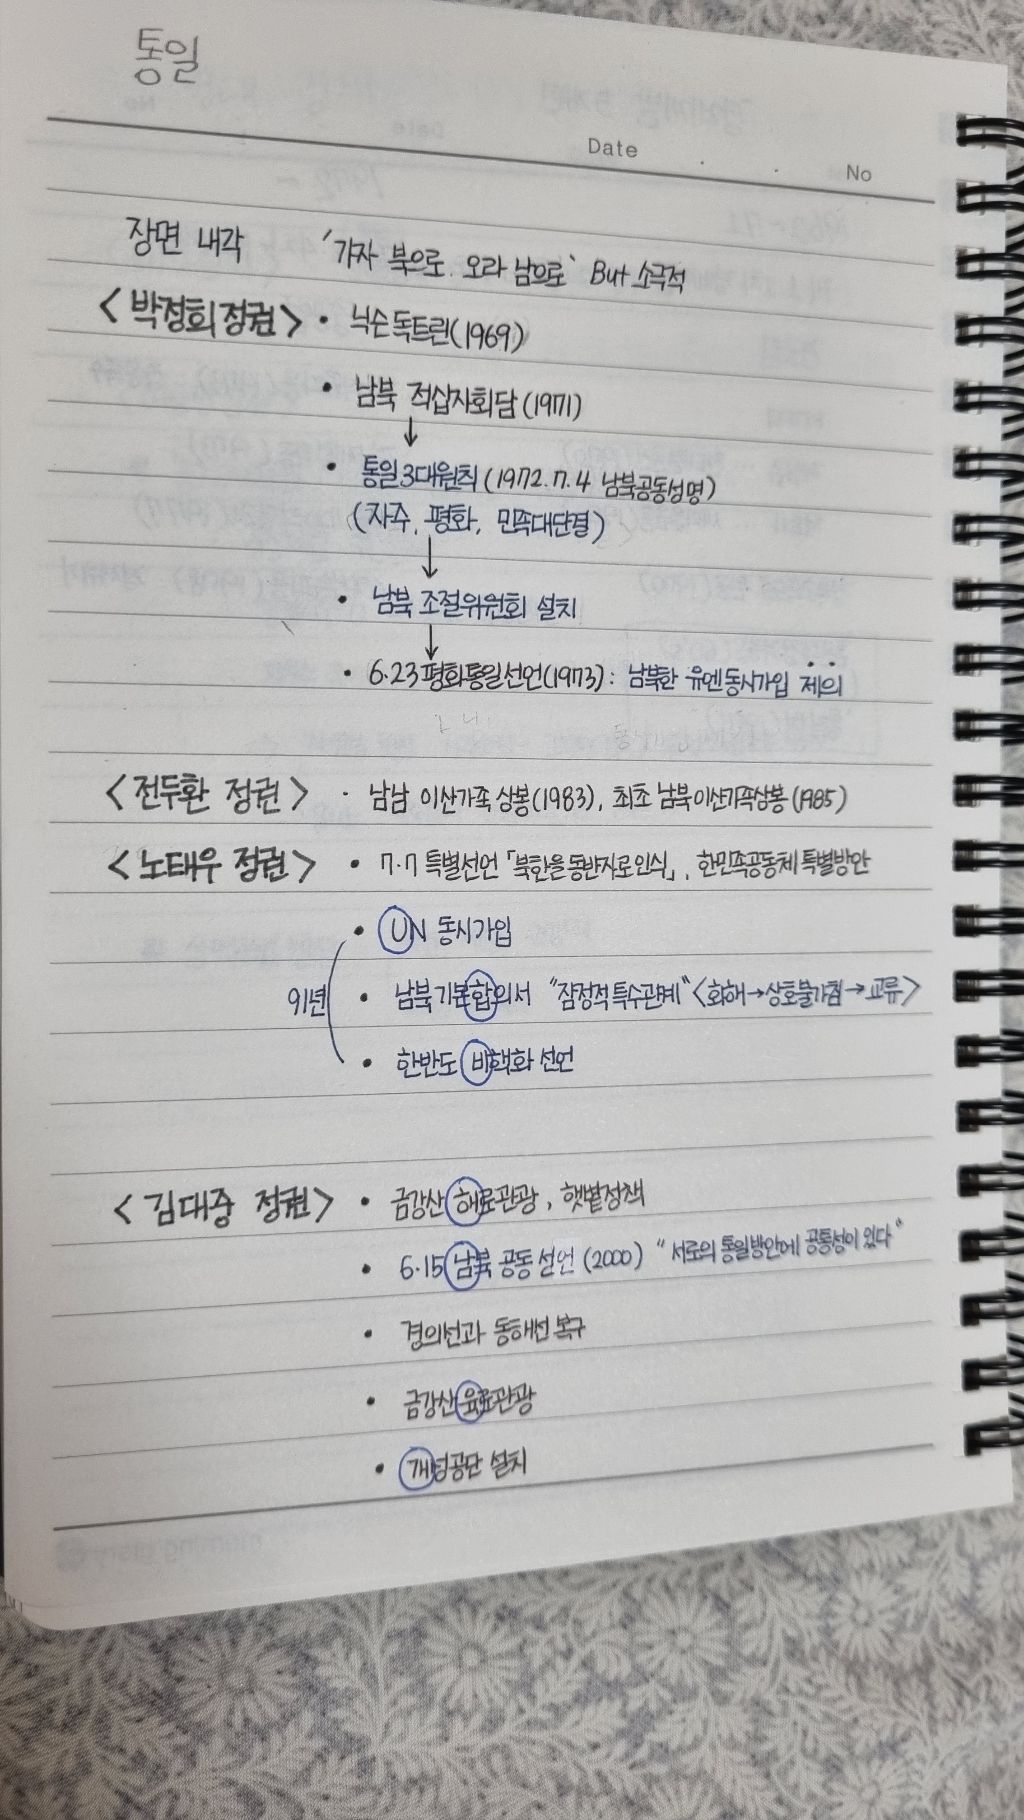 통일
Date . . No
장면 내각 '가자 북으로. 오라 남으로' But 소극적
<박정희정권> • 닉슨독트린(1969)
• 남북 적십자회담(1971)
↓
• 통일3대원칙(1972.7.4 남북공동성명)
(자주, 평화, 민족대단결)
↓
• 남북 조절위원회 설치
↓
• 6.23평화통일선언(1973): 남북한 유엔동시가입 제의
<전두환 정권> · 남남 이산가족 상봉(1983), 최초 남북이산가족상봉(1985)
<노태우 정권> • 7·7 특별선언「북한을 동반자로 인식」, 한민족공동체 특별방안
• UN 동시가입
91년 • 남북기본합의서 "잠정적특수관계"<화해→상호불가침→교류>
• 한반도 비핵화 선언
<김대중 정권> • 금강산 해로관광, 햇볕정책
• 6·15 남북 공동 선언 (2000) "서로의 통일방안에 공통성이 있다"
• 경의선과 동해선 복구
• 금강산육로관광
• 개성공단 설치